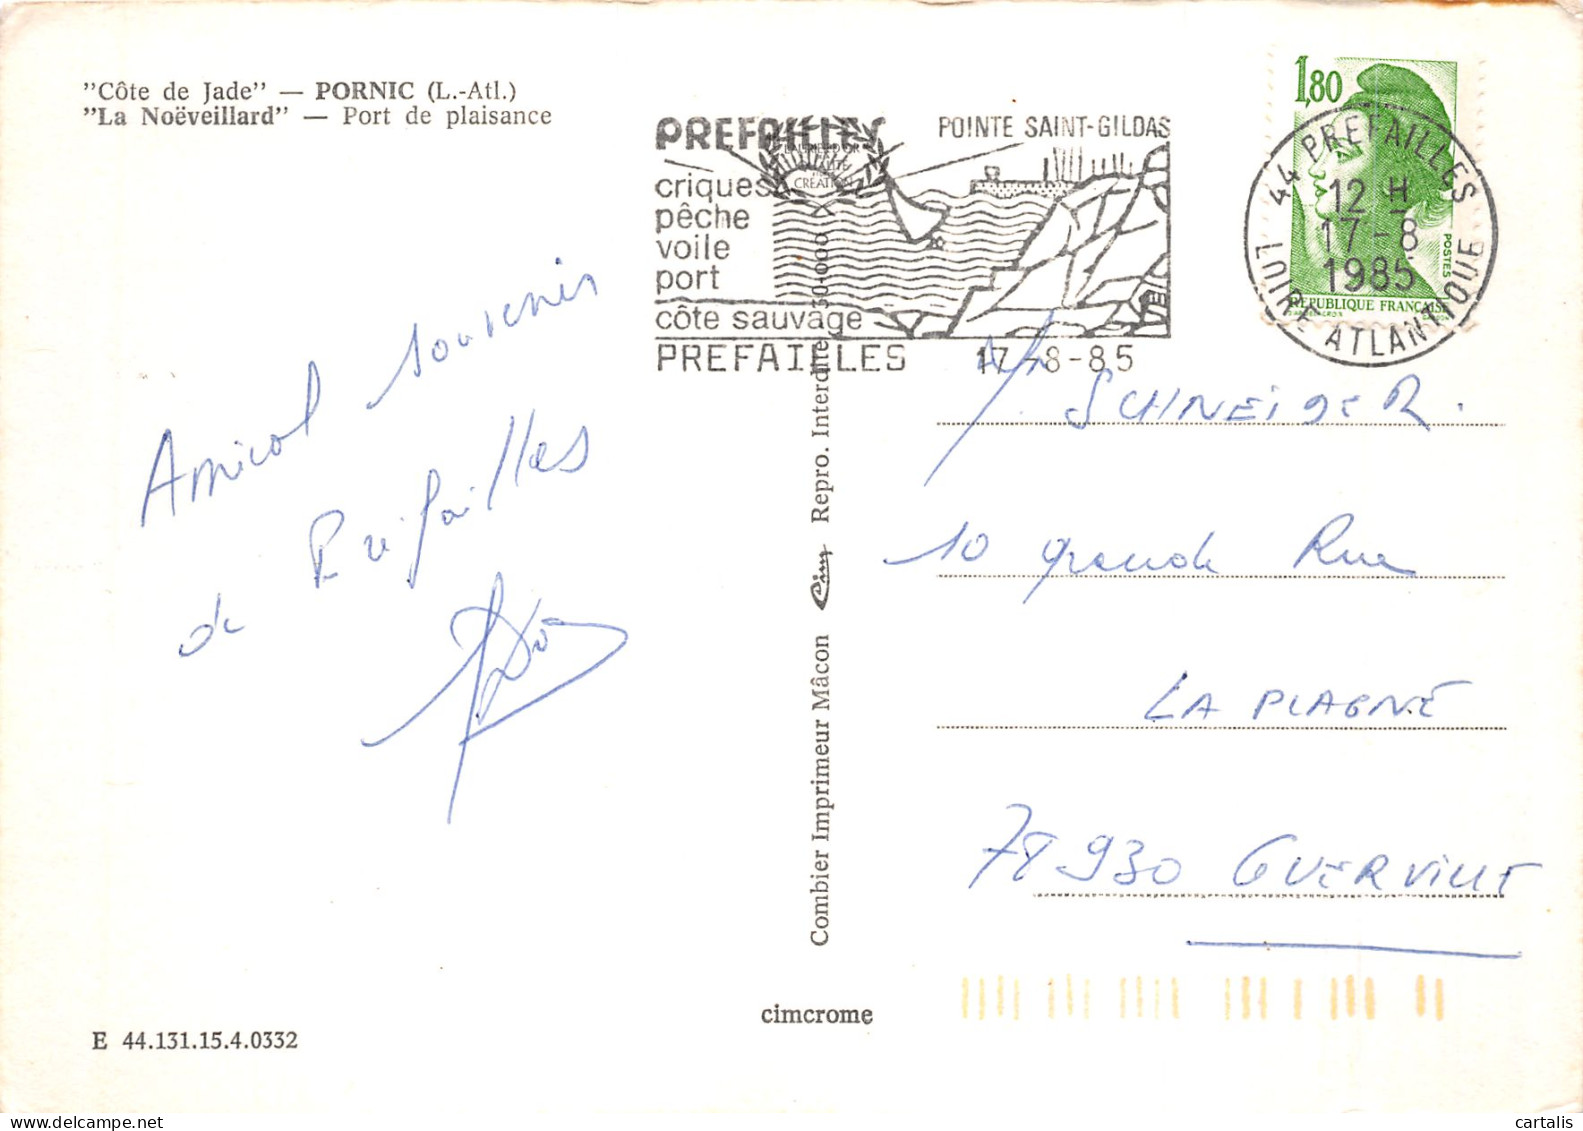 "Côte de Jade" — PORNIC (L.-Atl.)
"La Noëveillard" — Port de plaisance
PREFAILLES
POINTE SAINT-GILDAS
CREATION
criques
pêche
voile
port
côte sauvage
PREFAILLES 17-8-85
1,80
POSTES
REPUBLIQUE FRANÇAISE
44 PREFAILLES
12 H
17-8
1985
LOIRE ATLANTIQUE
Amical souvenir
de Préfailles
SCHNEIDER.
10 grande Rue
LA PLAGNE
78930 GUERVILLE
Combier Imprimeur Mâcon Cim Repro. Interdite 30-000
cimcrome
E 44.131.15.4.0332
cartalis